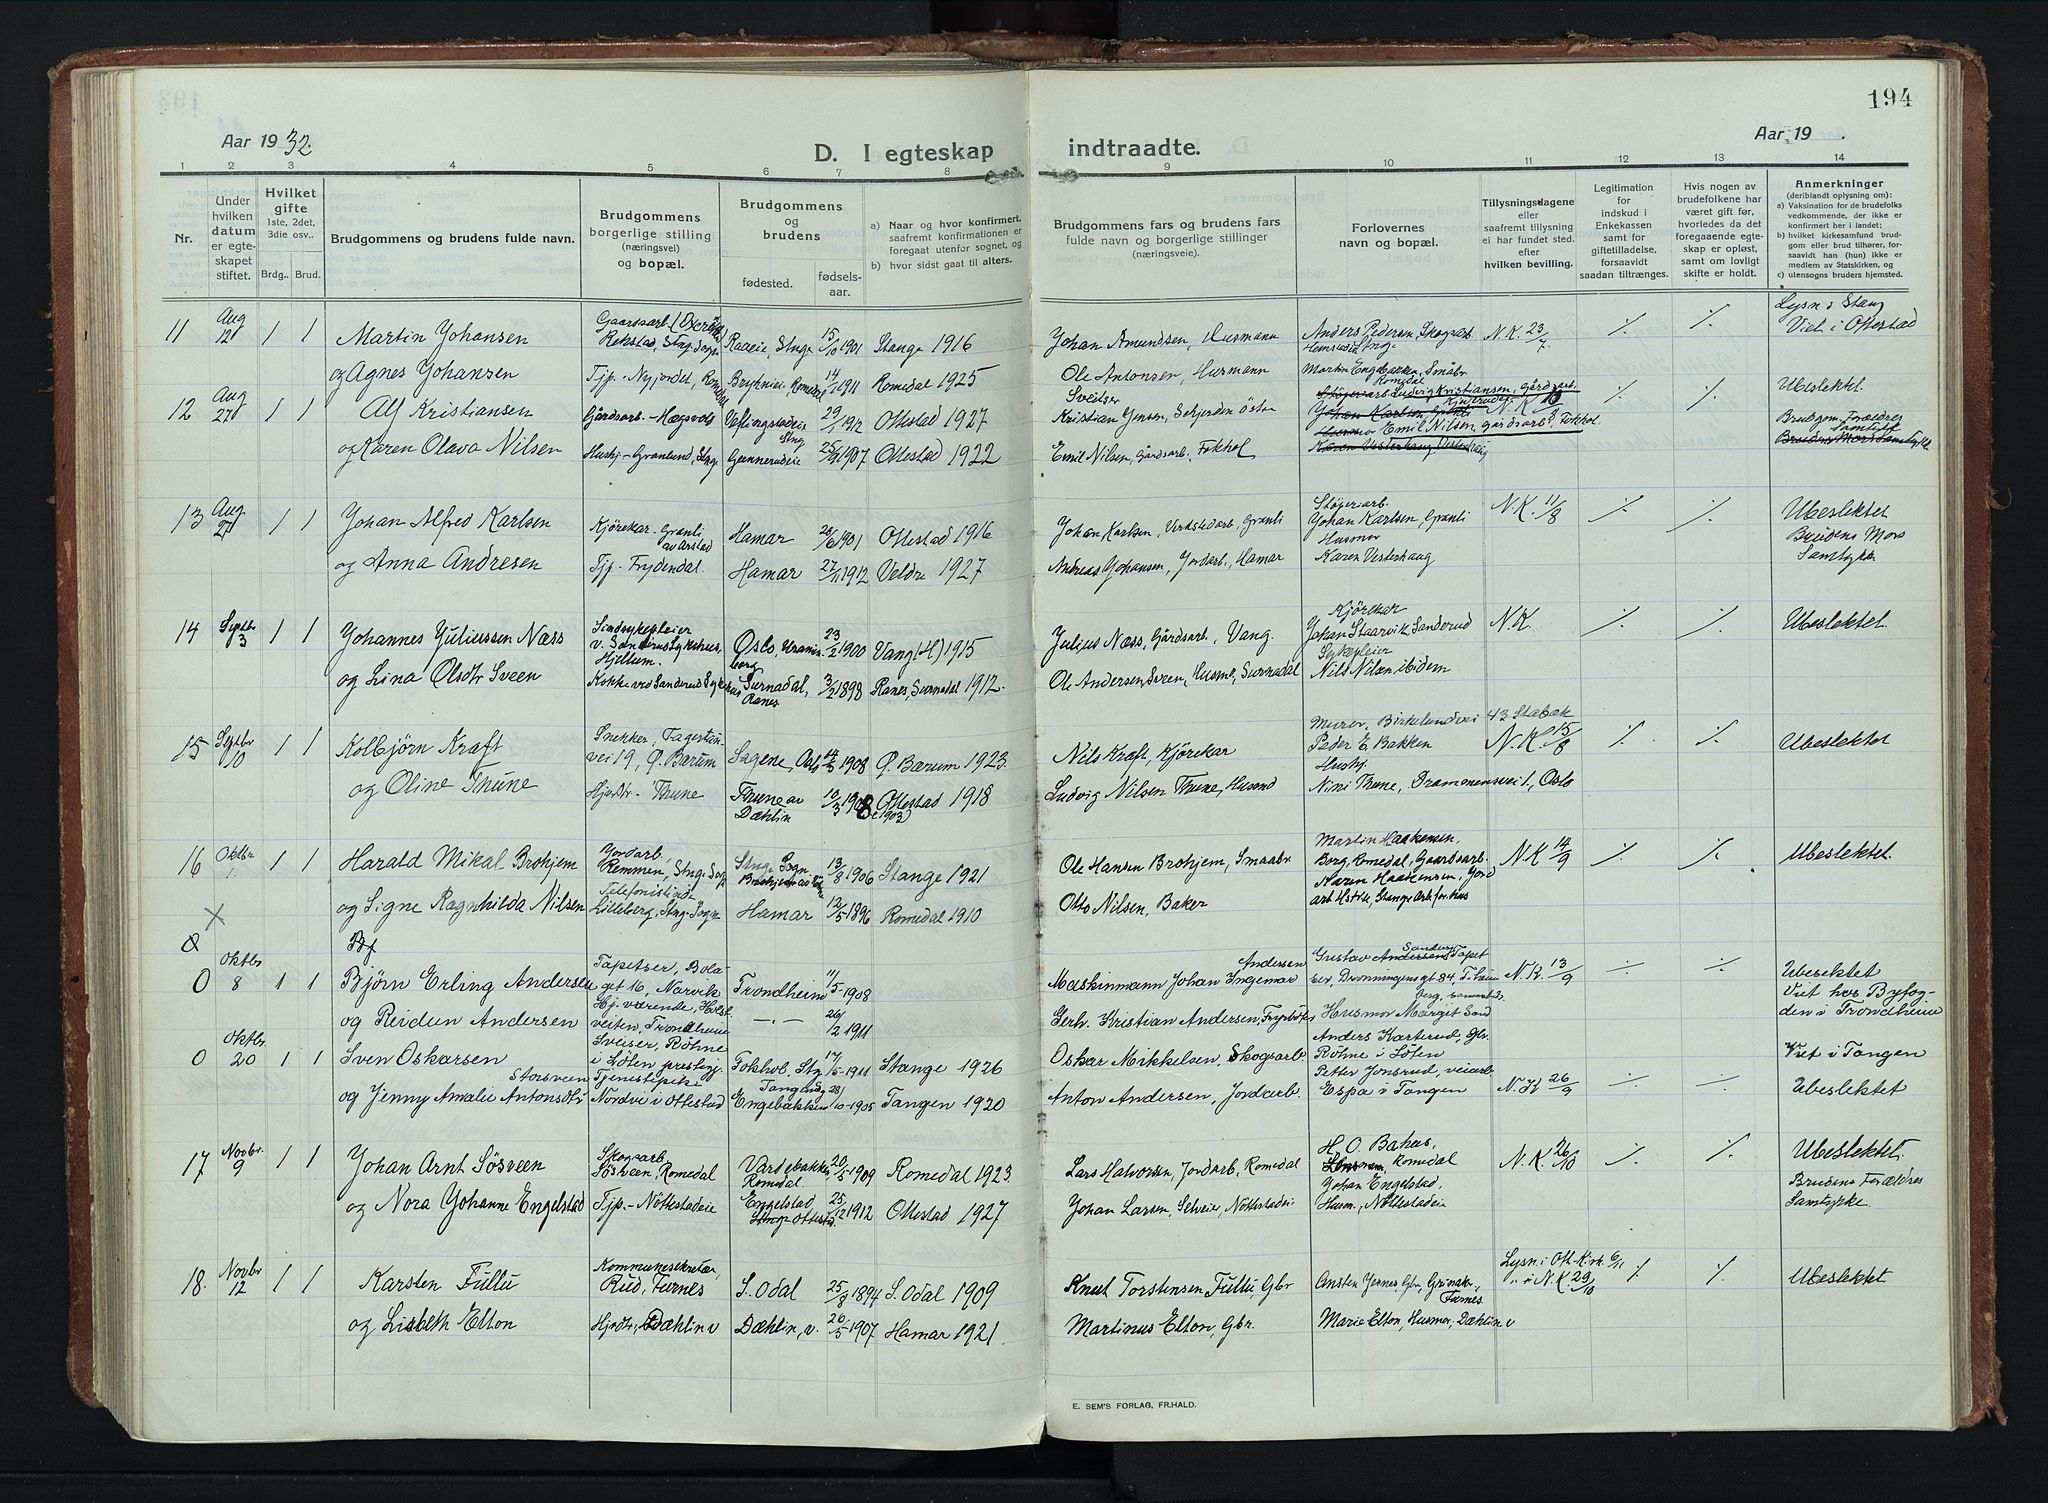 194
Aar 1932.
Aar 19 .
D. I egteskap indtraadte.
1 2 3 4 5 6 7 8 9 10 11 12 13 14
Nr.
Under hvilken datum er egteskapet stiftet.
Hvilket gifte 1ste, 2det, 3die osv..
Brdg.. Brud.
Brudgommens og brudens fulde navn.
Brudgommens borgerlige stilling (næringsvei) og bopæl.
Brudgommens og brudens
fødested. fødsels-aar.
a) Naar og hvor konfirmert. saafremt konfirmationen er foregaat utenfor sognet, og
b) hvor sidst gaat til alters.
Brudgommens fars og brudens fars fulde navn og borgerlige stillinger (næringsvei).
Forlovernes navn og bopæl.
Tillysningsdagene eller saafremt tillysning ei har fundet sted. efter hvilken bevilling.
Legitimation for indskud i Enkekassen samt for giftetilladelse, forsaavidt saadan tiltrænges.
Hvis nogen av brudefolkene har været gift før, hvorledes da det foregaaende egteskap er opløst, samt om lovligt skifte er holdt.
Anmerkninger (deriblandt oplysning om):
a) Vaksination for de brudefolks vedkommende, der ikke er konfirmert her i landet;
b) hvilket kirkesamfund brudgom eller brud tilhører, forsaavidt han (hun) ikke er medlem av Statskirken, og
c) utensogns bruders hjemsted.
11 Aug 12 1 1 Martin Johansen Gaardsarb. Rekstad, Stng. Sogn Raaeie, Stnge 15/10 1901 Stange 1916 Johan Amundsen, Husmann Anders Pedersen, Skogsarb. N.K. 23/7 ./. ./. Lysn i Stang Viet i Ottestad
og Agnes Johansen Tjp. - Nyjordet, Romedal Brynieie Romedal 14/1 1911 Romedal 1925 Ole Antonsen, Husmann Martin Engbakken, Småbr. Romedal
12 Aug 27 1 1 Alf Kristiansen Gårdsarb - Mægsvols 29/1 1912 Ottestad 1927 Sveitser Kristian Jensen, Ludvig Kristiansen, gårdsarb. N.K. ./. ./. Ubeslektet. Brudgom. Forældres Samtykke
og Karen Olava Nilsen Hushj - Granlund, Stng. Gunnerudeie 25/9 1907 Ottestad 1922 Emil Nilsen, Gårdsarb. Fokhol Emil Nilsen, gårdsarb. Fokhol
13 Aug 27 1 1 Johan Alfred Karlsen Kjørekar. Granli av Arstad Hamar 20/6 1901 Ottestad 1916 Johan Karlsen, Verkstedarb, Granli Støperiarb. Johan Karlsen, Granli N.K. 11/8 ./. ./. Ubeslektet Brudens Mors Samtykke
og Anna Andresen Tjp. Frydendal. Hamar 27/11 1912 Veldre 1927 Andreas Johansen, Jordarb, Hamar Husmor Karen Vesterhaug
14 Septbr 3 1 1 Johannes Juliussen Næss Sindsykepleier v. Sanderud Sykehus, Hjellum. Oslo, Uranienborg 23/2 1900 Vang (H) 1915 Julius Næss, Gårdsarb., Vang. Kjørekar Johan Staarvik Sanderud N.K. ./. ./. Ubeslektet
og Lina Olsdtr Sveen Kokke ved Sanderud Sykehus Surnadal, Ranes 3/2 1898 Ranes, Surnadal 1912. Ole Andersen Sveen, Husm, Surnadal Sykepleier Nils Nilsen ibidem
15 Septbr 10 1 1 Kolbjørn Kraft Snekker, Fagertunvei 19, Ø. Bærum Sagene, Oslo 1908 Ø. Bærum 1923. Nils Kraft, Kjørekar Murer, Birkelundvei 43 Stabæk Peder E. Bakken N.K. 15/8 ./. ./. Ubeslektet
og Oline Thune Hjdtr - Thune Thune av Dæhlin 10/3 1908 Ottestad 1918 (1903) Ludvig Nilsen Thune, Husmd Hushj. Nini Thune, Drammensvei 1, Oslo
16 Oktbr 1. 1 1 Harald Mikal Brohjem Jordarb. Remmen, Stng. Sogn Stng. Sogn 13/8 1906 Stange 1921 Ole Hansen Brohjem, Smaabr Martin Haakensen, Borg, Romedal, Gaardsarb. N.K 14/9 ./. ./. Ubeslektet.
X og Signe Ragnhilda Nilsen Telefonistinde Lilleberg, Stng. Sogn Hamar 12/5 1896 Romedal 1910 Otto Nilsen, Baker Karen Haakensen, Stange
Bf
0 Oktbr 8 1 1 Bjørn Erling Andersen Tapetser, Bolagt 16, Narvik Trondheim 11/5-1908 Maskinmann Johan Ingemar Andersen Gustav Sanderson Tapetser, Dronningensgt 84, T.heim N.K. 13/9 ./. ./. Ubeslektet Viet hos Byfogden i Trondheim
og Reidun Andersen Hj. værende, Trondheim -"- 26/2 1911 Gerh. Kristian Andersen, Fyrbøter Husmor Margit Sand
0 Oktbr 20 1 1 Sven Oskarsen Sveiser, Røhne i Løten prestegj. Fokhol, Stg 17/5-1911 Stange 1926 Oskar Mikkelsen, Skogsarb. Anders Karterud, Gbr. Røhne i Løten Viet i Tangen
og Jenny Amalie Antonsdtr Storsveen Tjenestepike Nordvi i Ottestad Tangen Engebakken 28/10-1905 Tangen 1920 Anton Andersen, Jordarb. Petter Jonsrud, veiarb. Espa i Tangen N.K. 26/9 ./. ./. Ubeslektet
17 Novbr. 9 1 1 Johan Arnt Søsveen Skogsarb. Søsveen, Romedal Vardebakke, Romedal 20/5 1909 Romedal 1923. Lars Halvorsen, Jordarb, Romedal H. O. Bahus, Romedal N.K. 26/10 ./. ./. Ubeslektet. Brudens Forældres Samtykke.
og Nora Johanne Engelstad Tjp. - Nøttestadeie Engelstad, Ottestad 25/12 1912 Ottestad 1927 Johan Larsen, Selveie, Nøttestadeie Johan Engelstad, Husm., Nøttestadeie
18. Novbr 12 1 1 Karsten Fullu Kommunesekretær, Rud, Furnes S. Odal 25/8 1894 S. Odal 1909 Knut Torstensen Fullu, Gbr Ansten Jernes, Gbr, Grinaker Furnes Lysn. i Ott. Kirk. 6/11 " i N.K. 29/10 ./. ./. Ubeslektet
og Lisbeth Elton Hjdtr, Dæhlin v Dæhlin, v. 20/5 1907 Hamar 1921. Martinus Elton, Gbr. Marie Elton, Husmor, Dæhlin v
E. SEM'S FORLAG, FR.HALD.